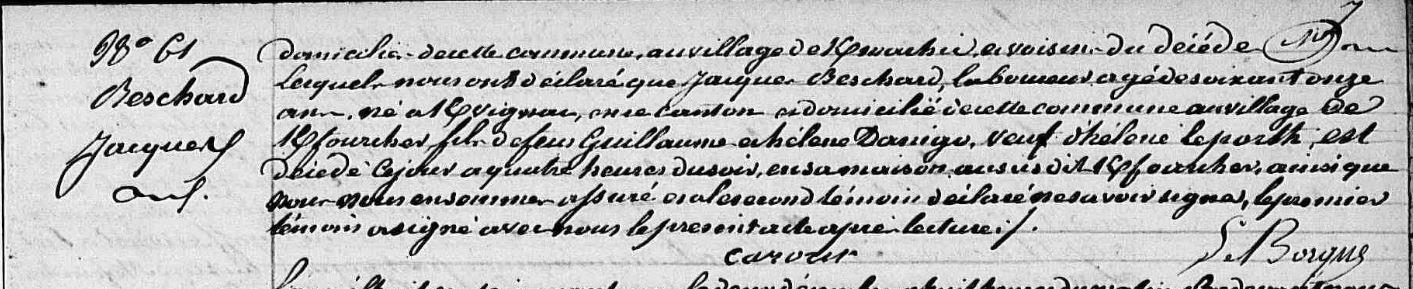 N° 61
Beschard
Jacques
domicilié de cette commune, au village de et voisin du décédé
Lesquels nous ont déclaré que Jacques Beschard, laboureur agé de soixant onze
ans, né a K/vignac, en ce canton et domicilié de cette commune au village de
K/fourcher fils de feus Guillaume et hélene Danigo, veuf d'hélene Leporth, est
décédé ce jour a quatre heures du soir, en sa maison, au susdit K/fourcher, ainsi que
nous nous en sommes assuré et a le second témoin déclaré ne savoir signer, le premier
témoin a signé avec nous le present acte après lecture ./.
carour
Le Borgne